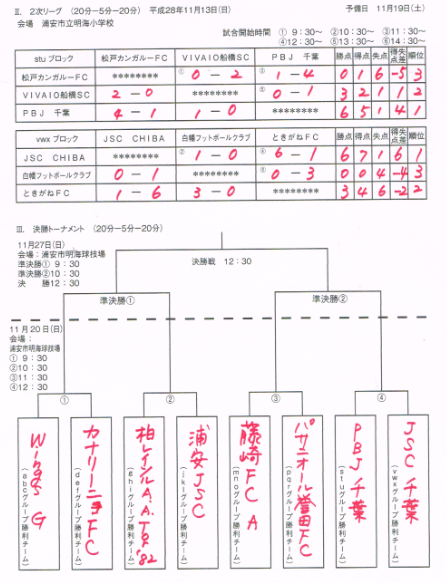 Ⅱ. 2次リーグ (20分－5分－20分) 平成28年11月13日(日) 予備日 11月19日(土)
会場 浦安市立明海小学校
試合開始時間 ① 9：30～ ②10：30～ ③11：30～
④12：30～ ⑤13：30～ ⑥14：30～
stu ブロック 松戸カンガルーFC VIVAIO船橋SC PBJ 千葉 勝点 得点 失点 得失点差 順位
松戸カンガルーFC ******** ① 0 － 2 ③ 1 － 4 0 1 6 -5 3
VIVAIO船橋SC 2 － 0 ******** ⑤ 0 － 1 3 2 1 1 2
PBJ 千葉 4 － 1 1 － 0 ******** 6 5 1 4 1
vwx ブロック JSC CHIBA 白幡フットボールクラブ ときがねFC 勝点 得点 失点 得失点差 順位
JSC CHIBA ******** ② 1 － 0 ④ 6 － 1 6 7 1 6 1
白幡フットボールクラブ 0 － 1 ******** ⑥ 0 － 3 0 0 4 -4 3
ときがねFC 1 － 6 3 － 0 ******** 3 4 6 -2 2
Ⅲ. 決勝トーナメント (20分－5分－20分)
11月27日(日)
会場：浦安市明海球技場
準決勝① 9：30
準決勝②10：30
決 勝12：30
決勝戦 12：30
準決勝① 準決勝②
11月20日(日)
浦安市明海球技場
① 9：30
②10：30
③11：30
④12：30
① ② ③ ④
Wings G
(abcグループ勝利チーム)
カナリーニョFC
(defグループ勝利チーム)
柏レイソルA.A.TOR'82
(ghiグループ勝利チーム)
浦安JSC
(jklグループ勝利チーム)
藤崎FC A
(mnoグループ勝利チーム)
パサニオール誉田FC
(pqrグループ勝利チーム)
PBJ千葉
(stuグループ勝利チーム)
JSC千葉
(vwxグループ勝利チーム)